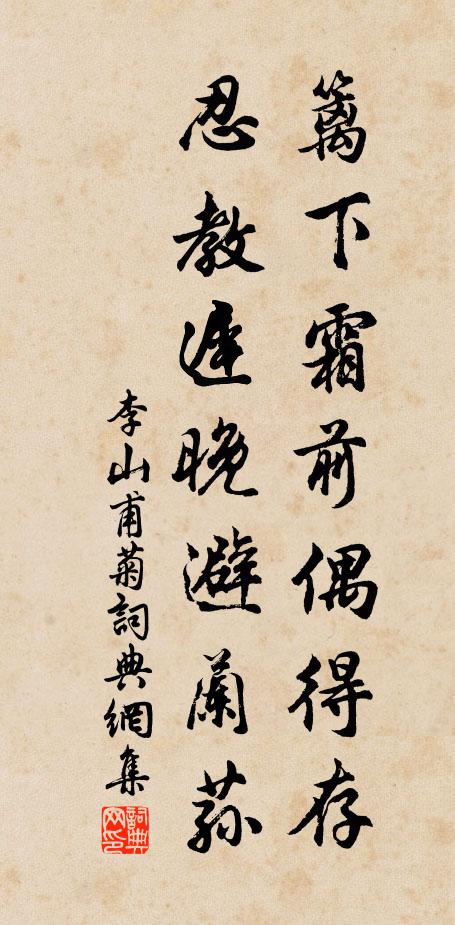 籬下霜前偶得存
忍教遲晚避蘭蓀
李山甫菊詞典網集
詞典网印